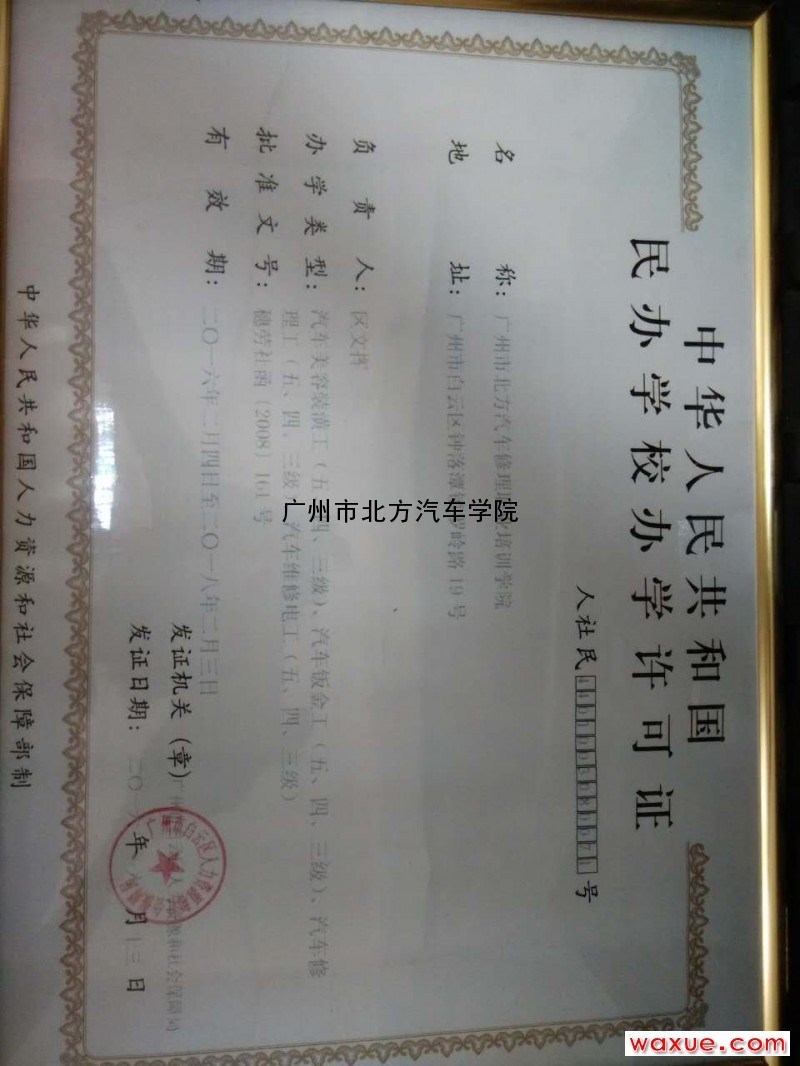 中华人民共和国
民办学校办学许可证
人社民
号
名称：广州市北方汽车修理职业培训学院
地址：广州市白云区钟落潭镇罗岭路19号
负责人：区文挡
办学类型：汽车美容装潢工（五、四、三级）、汽车钣金工（五、四、三级）、汽车修
理工（五、四、三级）、汽车维修电工（五、四、三级）
批准文号：穗劳社函（2008）161号
有效期：二〇一六年二月四日至二〇一八年二月三日
发证机关（章）广州市白云区人力资源和社会保障局
发证日期：二〇一 年 月十三日
中华人民共和国人力资源和社会保障部制
广州市北方汽车学院
waxue.com